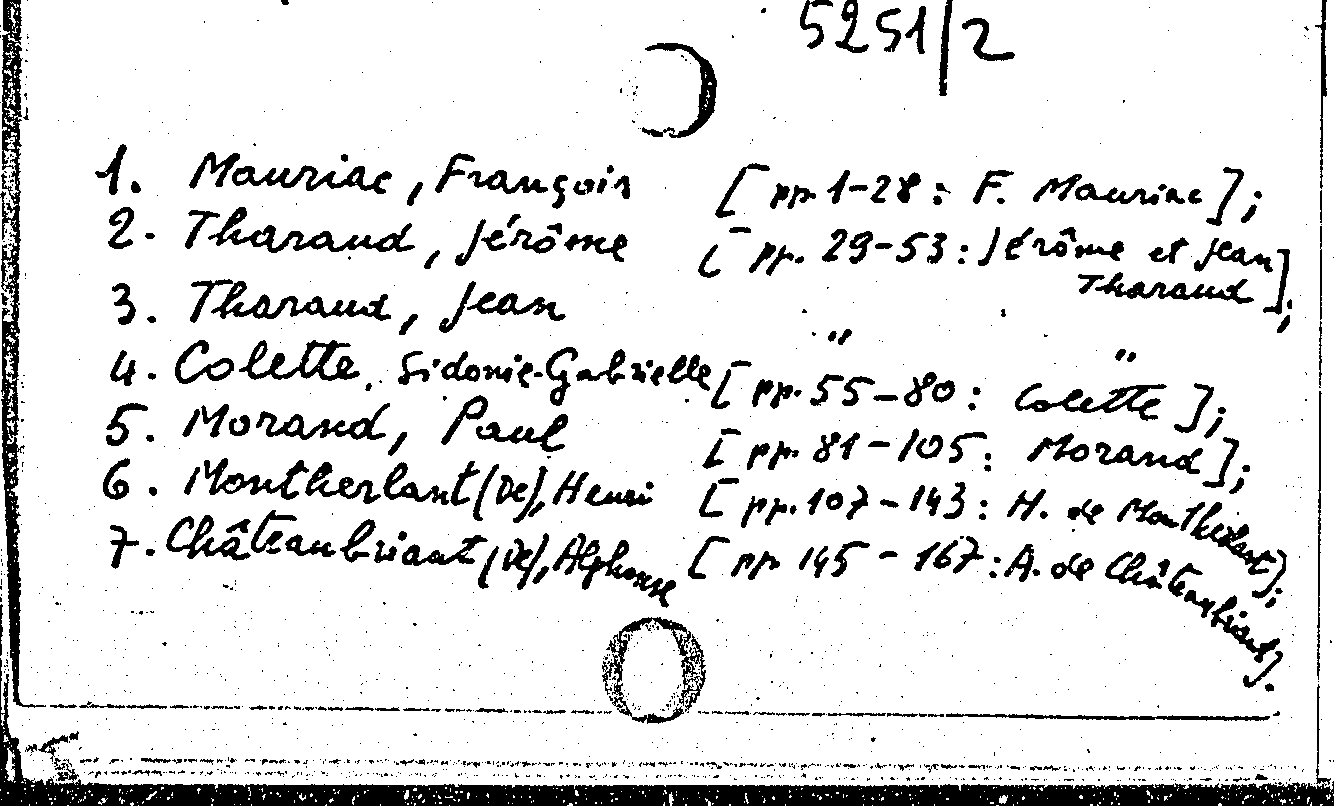 5251/2
1. Mauriac, François [pp. 1-28 : F. Mauriac];
2. Tharaud, Jérôme [pp. 29-53 : Jérôme et Jean
Tharaud];
3. Tharaud, Jean " "
4. Colette, Sidonie-Gabrielle [pp. 55-80 : Colette];
5. Morand, Paul [pp. 81-105 : Morand];
6. Montherlant (De), Henri [pp. 107-143 : H. de Montherlant];
7. Châteaubriant (De), Alphonse [pp 145-167 : A. de Châteaubriant].